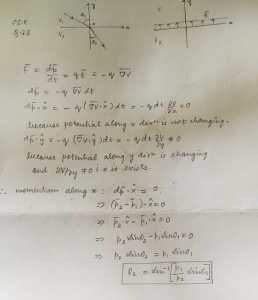 F̄ = dp̄/dt = qĒ = -q ∇̄V
dp̄ = -q ∇̄V dt
dp̄·x̂ = -q (∇̄V·x̂)dt = -q dt ∂V/∂x = 0
because potential along x dirⁿ is not changing.
dp̄·ŷ = -q (∇̄V·ŷ)dt = -q dt ∂V/∂y ≠ 0
because potential along y dirⁿ is changing
and ∂V/∂y ≠ 0 exists.
∴ momentum along x: dp̄·x̂ = 0
⇒ (p̄₂ - p̄₁)·x̂ = 0
⇒ p̄₂·x̂ - p̄₁·x̂ = 0
⇒ p₂ sinθ₂ - p₁ sinθ₁ = 0
⇒ p₂ sinθ₂ = p₁ sinθ₁
θ₂ = sin⁻¹[p₁/p₂ sinθ₁]